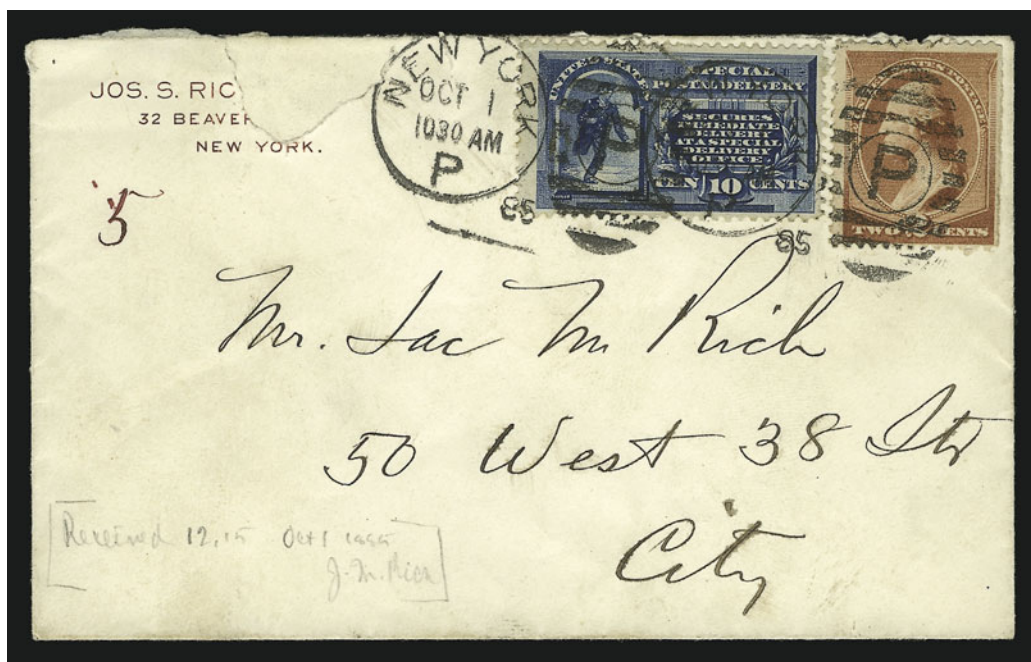 JOS. S. RIC
32 BEAVER
NEW YORK.
NEW YORK
OCT 1
1030 AM
P
85
UNITED STATES
SPECIAL
POSTAL DELIVERY
SECURES
IMMEDIATE
DELIVERY
AT A SPECIAL
DELIVERY
OFFICE
TEN 10 CENTS
85
P
TWO CENTS
5
Mr. Jac M Rich
50 West 38 Str
City
Received 12,15 Oct 1 1885
J. M. Rich